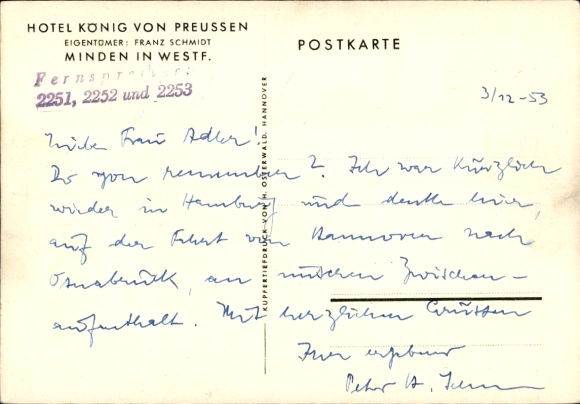 HOTEL KÖNIG VON PREUSSEN
EIGENTÜMER: FRANZ SCHMIDT
MINDEN IN WESTF.
Fernsprecher:
2251, 2252 und 2253
POSTKARTE
KUPFERTIEFDRUCK VON H. OSTERWALD, HANNOVER
3/12-53
Liebe Frau Adler!
Do you remember? Ich war kürzlich
wieder in Hamburg und denke hier,
auf der Fahrt von Hannover nach
Osnabrück, an unseren Zwischen-
aufenthalt. Mit herzlichen Grüssen
Ihr ergebener
Peter H.